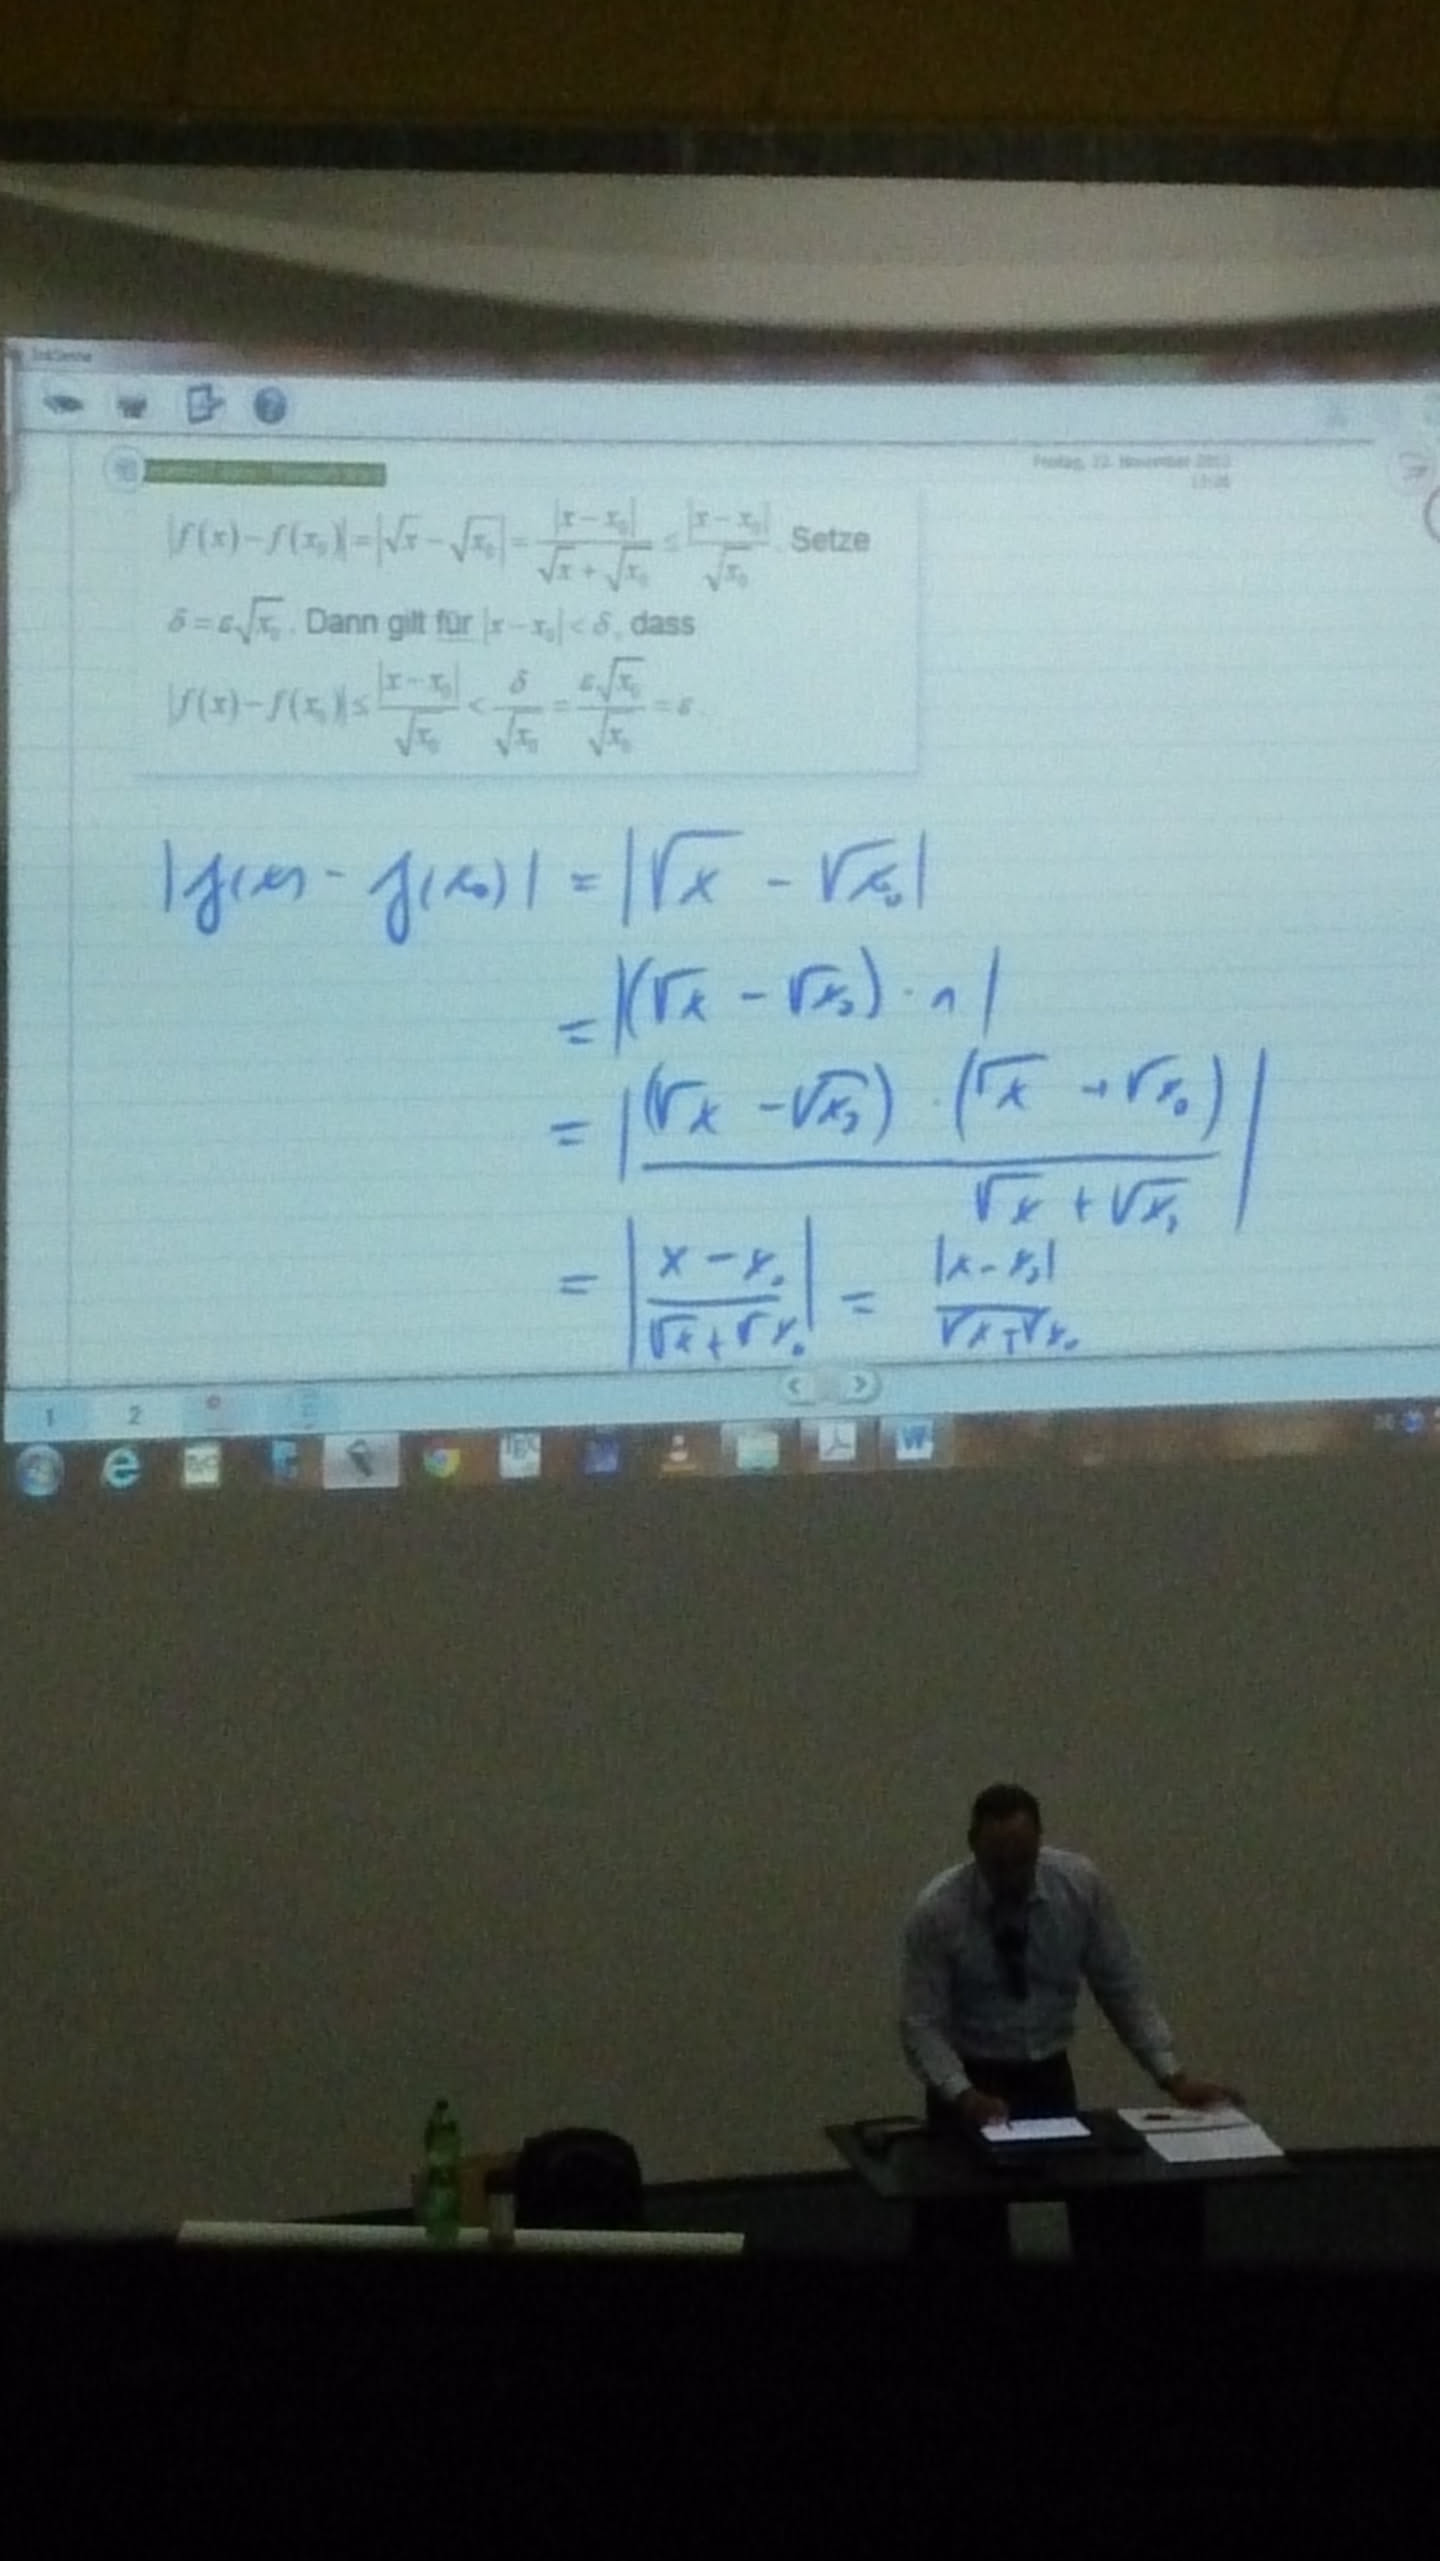 Freitag, 22. November 2013
|f(x)−f(x₀)|=|√x−√x₀|=|x−x₀|/(√x+√x₀)≤|x−x₀|/√x₀. Setze
δ=ε√x₀. Dann gilt für |x−x₀|<δ, dass
|f(x)−f(x₀)|≤|x−x₀|/√x₀<δ/√x₀=ε√x₀/√x₀=ε.
|f(x) - f(x₀)| = |√x - √x₀|
= |(√x - √x₀) · 1|
= |(√x - √x₀) · (√x + √x₀)/(√x + √x₀)|
= |(x - x₀)/(√x + √x₀)| = |x - x₀|/(√x + √x₀)
1 2
W